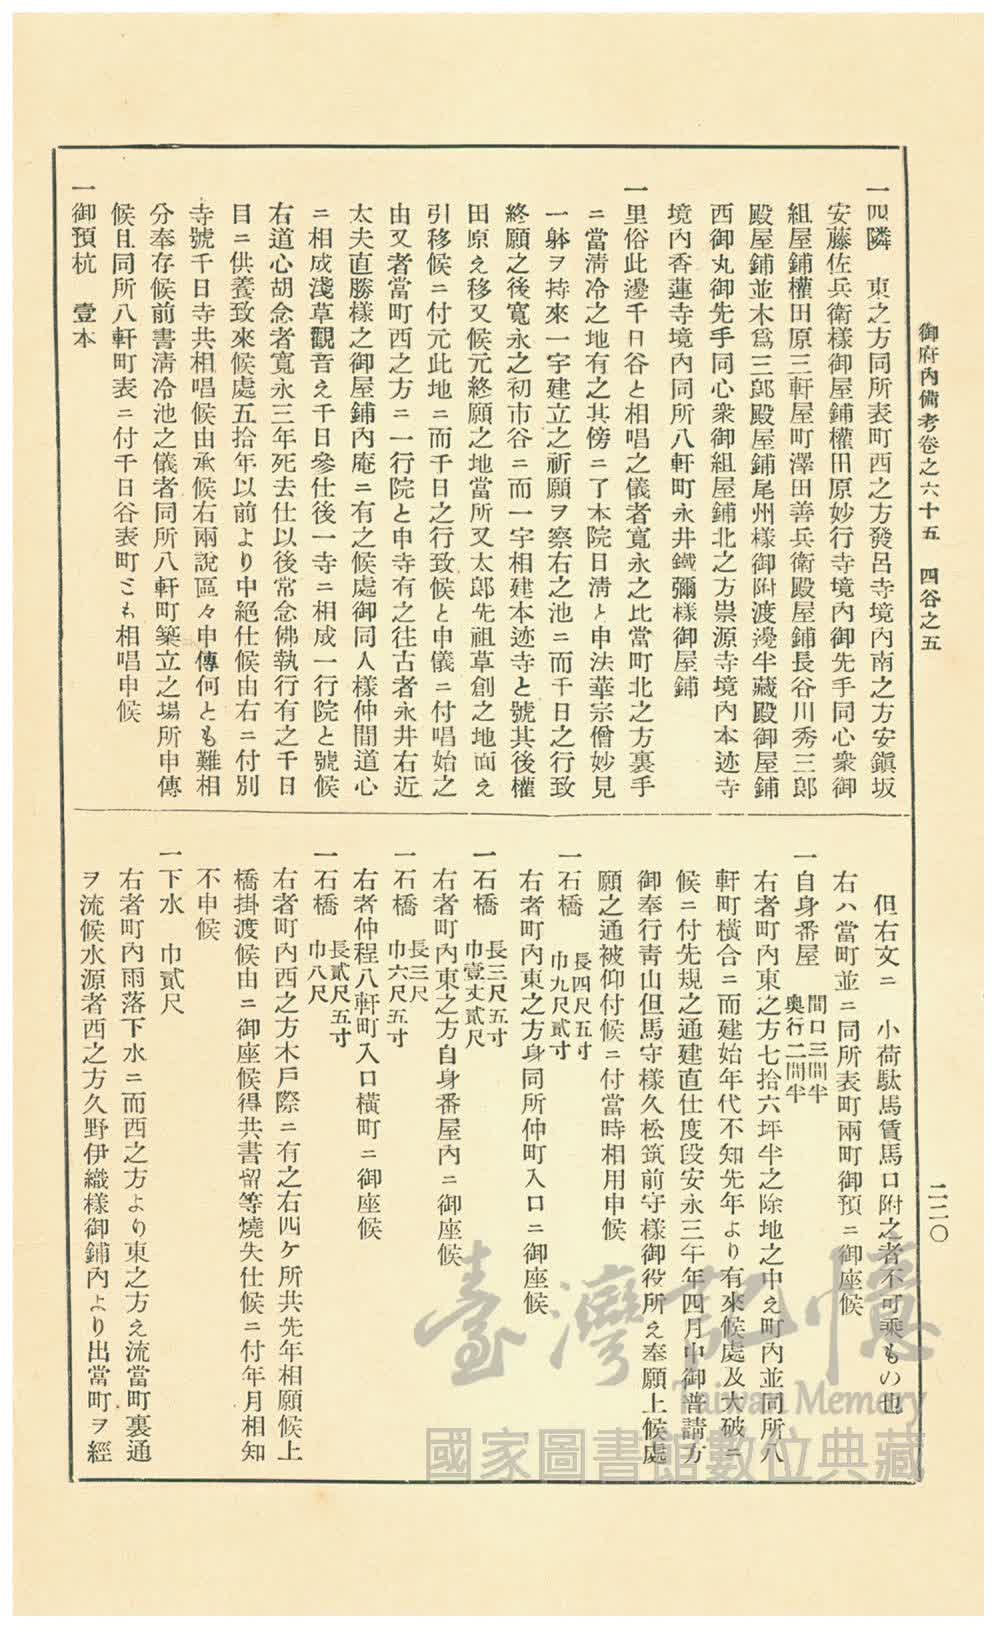 御府內備考卷之六十五　四谷之五
二二〇
一四隣　東之方同所表町西之方發呂寺境內南之方安鎭坂
安藤佐兵衛樣御屋鋪權田原妙行寺境內御先手同心衆御
組屋鋪權田原三軒屋町澤田善兵衛殿屋鋪長谷川秀三郎
殿屋鋪並木爲三郎殿屋鋪尾州樣御附渡邊半藏殿御屋鋪
西御丸御先手同心衆御組屋鋪北之方崇源寺境內本迹寺
境內香蓮寺境內同所八軒町永井鐵彌樣御屋鋪
一里俗此邊千日谷と相唱之儀者寬永之比當町北之方裏手
ニ當淸冷之地有之其傍ニ了本院日淸と申法華宗僧妙見
一躰ヲ持來一宇建立之祈願ヲ察右之池ニ而千日之行致
終願之後寬永之初市谷ニ而一宇相建本迹寺と號其後權
田原え移又候元終願之地當所又太郞先祖草創之地面え
引移候ニ付元此地ニ而千日之行致候と申儀ニ付唱始之
由又者當町西之方ニ一行院と申寺有之往古者永井右近
太夫直勝樣之御屋鋪內庵ニ有之候處御同人樣仲間道心
ニ相成淺草觀音え千日參仕後一寺ニ相成一行院と號候
右道心胡念者寬永三年死去仕以後常念佛執行有之千日
目ニ供養致來候處五拾年以前より中絕仕候由右ニ付別
寺號千日寺共相唱候由承候右兩說區々申傳何とも難相
分奉存候前書淸冷池之儀者同所八軒町築立之場所申傳
候且同所八軒町表ニ付千日谷表町とも相唱申候
一御預杭　壹本
但右文ニ　小荷駄馬賃馬口附之者不可乘もの也
右ハ當町並ニ同所表町兩町御預ニ御座候
一自身番屋　間口三間半　奧行二間半
右者町內東之方七拾六坪半之除地之中え町內並同所八
軒町橫合ニ而建始年代不知先年より有來候處及大破ニ
候ニ付先規之通建直仕度段安永三午年四月中御普請方
御奉行靑山但馬守樣久松筑前守樣御役所え奉願上候處
願之通被仰付候ニ付當時相用申候
一石橋　長四尺五寸　巾九尺貳寸
右者町內東之方身同所仲町入口ニ御座候
一石橋　長三尺五寸　巾壹丈貳尺
右者町內東之方自身番屋內ニ御座候
一石橋　長三尺　巾六尺五寸
右者仲程八軒町入口橫町ニ御座候
一石橋　長貳尺五寸　巾八尺
右者町內西之方木戶際ニ有之右四ケ所共先年相願候上
橋掛渡候由ニ御座候得共書留等燒失仕候ニ付年月相知
不申候
一下水　巾貳尺
右者町內雨落下水ニ而西之方より東之方え流當町裏通
ヲ流候水源者西之方久野伊織樣御鋪內より出當町ヲ經
臺灣記憶
Taiwan Memory
國家圖書館數位典藏